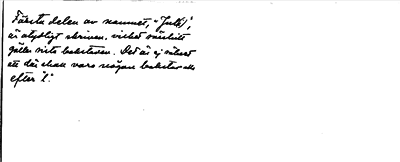 Första delen av namnet, "Jutl",
är otydligt skriven, vilket särskilt
gäller sista bokstaven. Det är ej
att där skall vara någon bokstav
efter "l".